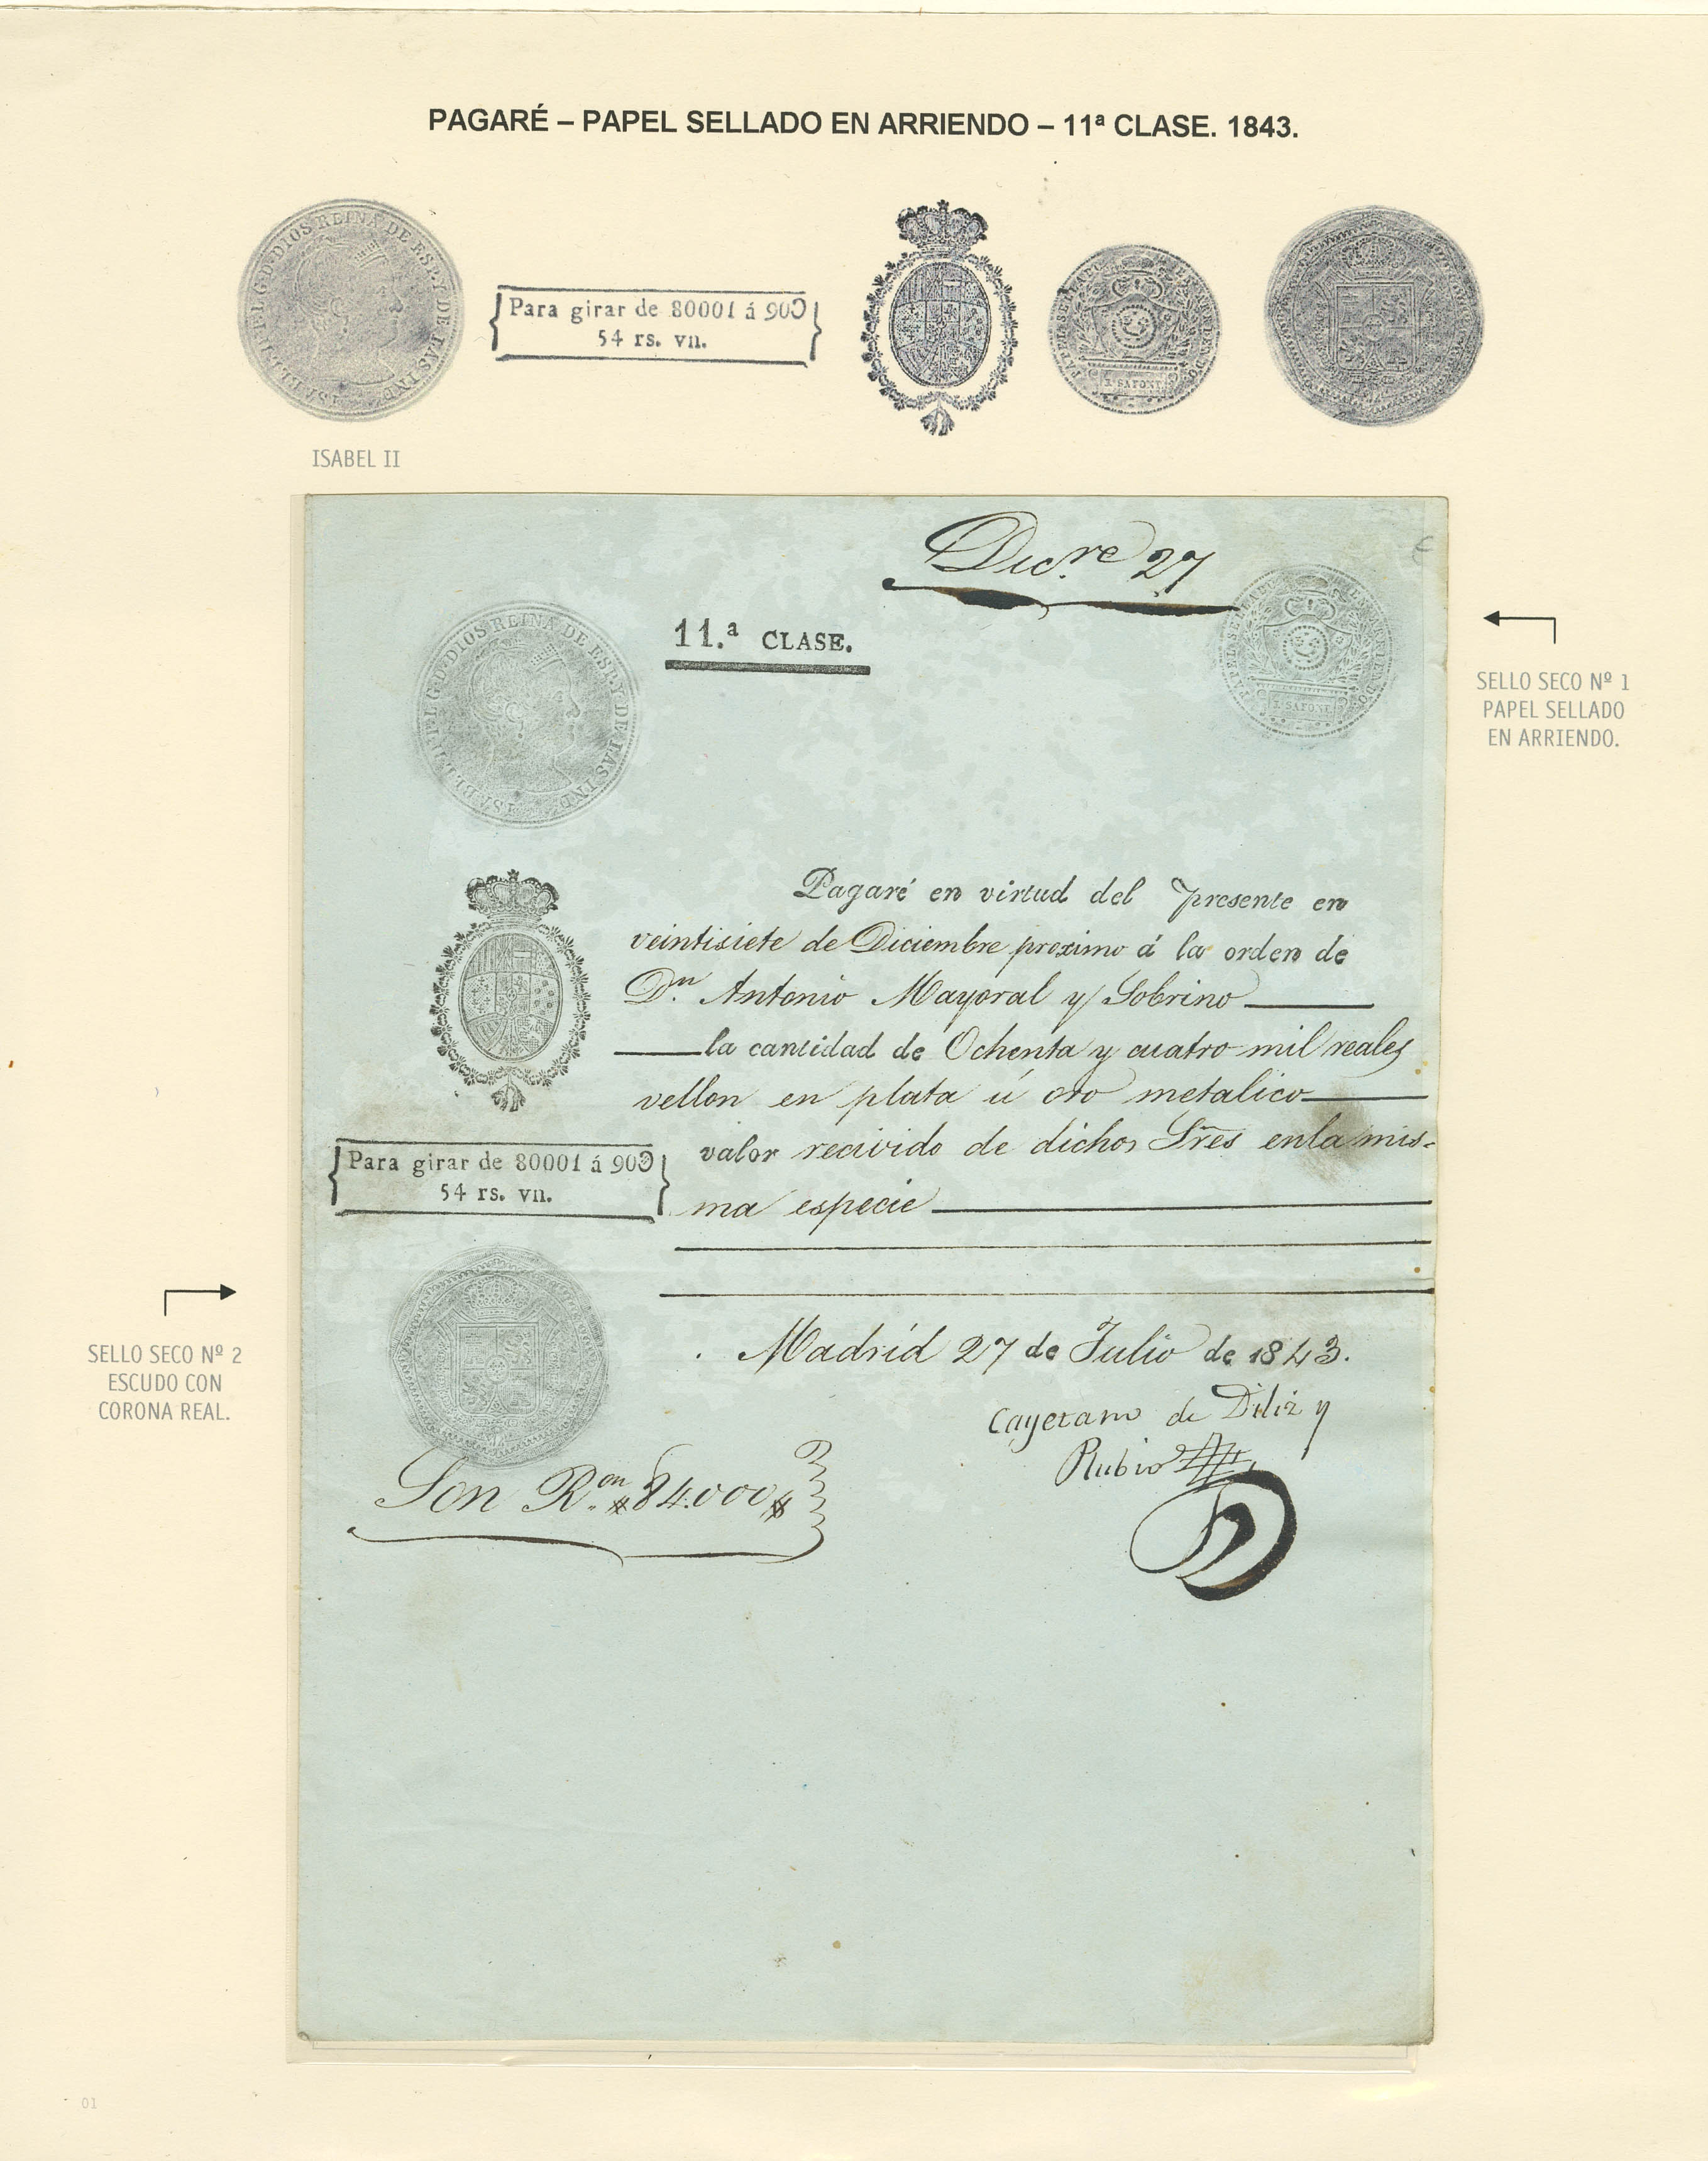 PAGARÉ – PAPEL SELLADO EN ARRIENDO – 11ª CLASE. 1843.
ISABEL II P.L.G.D. DIOS REINA DE ESP. Y DE LAS IND.
Para girar de 80001 á 900
54 rs. vn.
PAPEL SELLADO EN ARRIENDO
J. SAFONT
ISABEL II
Dic.re 27
11.ª CLASE.
ISABEL II P.L.G.D. DIOS REINA DE ESP. Y DE LAS IND.
PAPEL SELLADO EN ARRIENDO
J. SAFONT
SELLO SECO Nº 1
PAPEL SELLADO
EN ARRIENDO.
Pagaré en virtud del presente en
veintisiete de Diciembre proximo á la orden de
D.n Antonio Mayoral y Sobrino
la cantidad de Ochenta y cuatro mil reales
vellon en plata ú oro metalico
valor recivido de dichos Sres en la mis=
ma especie
Para girar de 80001 á 900
54 rs. vn.
SELLO SECO Nº 2
ESCUDO CON
CORONA REAL.
Madrid 27 de Julio de 1843.
Cayetano de y
Rubio
Son R.on 84.000
01